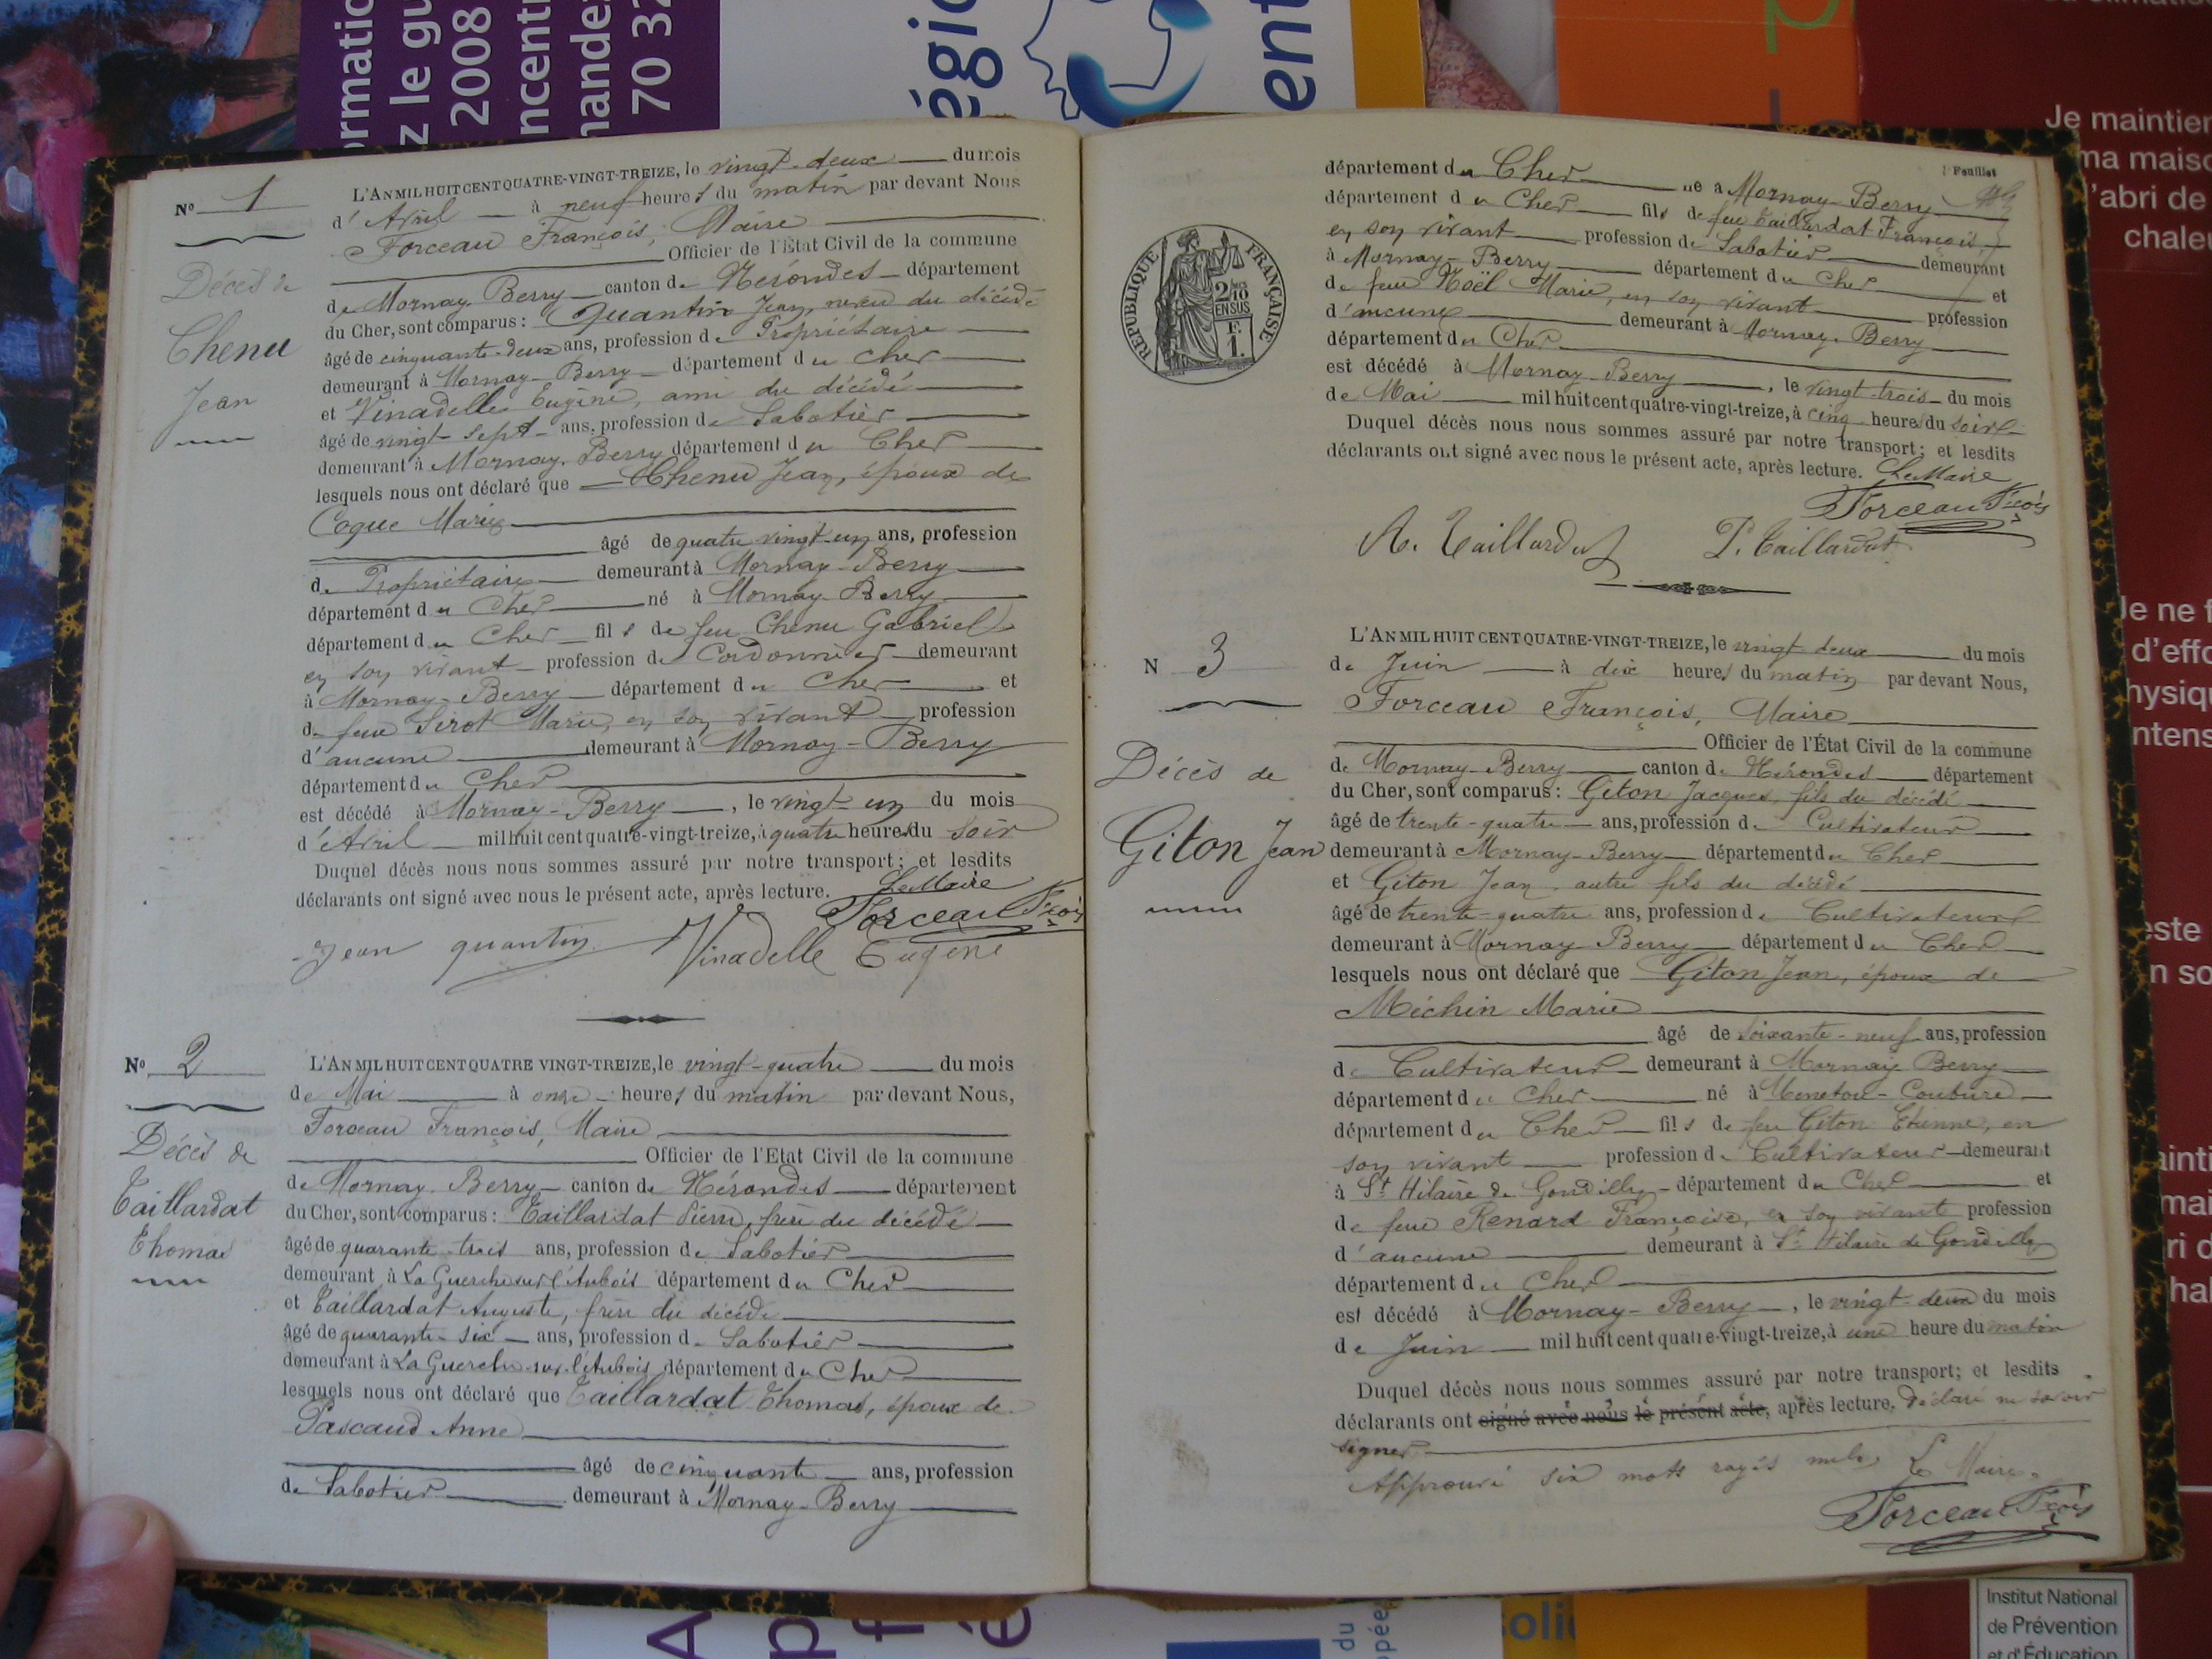 ormatic
z le gu
2008
ncentr
mande
70 32
égio
ent
Je maintien
ma maiso
l'abri de
chaleu
N° 1
L'AN MIL HUIT CENT QUATRE-VINGT-TREIZE, le vingt-deux du mois
d'Avril à neuf heures du matin par devant Nous
Forceau François, Maire
Officier de l'État Civil de la commune
de Mornay-Berry canton de Nérondes département
du Cher, sont comparus : Quantin Jean, neveu du décédé
âgé de cinquante-deux ans, profession de Propriétaire
demeurant à Mornay-Berry département du Cher
et Vinadelle Eugène, ami du décédé
âgé de vingt-sept ans, profession de Sabotier
demeurant à Mornay-Berry département du Cher
lesquels nous ont déclaré que Chenu Jean, époux de
Coque Marie
âgé de quatre vingt-un ans, profession
de Propriétaire demeurant à Mornay-Berry
département du Cher né à Mornay-Berry
département du Cher fils de feu Chenu Gabriel
en son vivant profession de Cordonnier demeurant
à Mornay-Berry département du Cher et
de feue Sirot Marie, en son vivant profession
d'aucune demeurant à Mornay-Berry
département du Cher
est décédé à Mornay-Berry, le vingt-un du mois
d'Avril mil huit cent quatre-vingt-treize, à quatre heures du soir
Duquel décès nous nous sommes assuré par notre transport ; et lesdits
déclarants ont signé avec nous le présent acte, après lecture. Le Maire
Forceau Fçois
Jean quantin Vinadelle Eugène
Décès de
Chenu
Jean
N° 2
L'AN MIL HUIT CENT QUATRE VINGT-TREIZE, le vingt-quatre du mois
de Mai à onze heures du matin par devant Nous,
Forceau François, Maire
Officier de l'Etat Civil de la commune
de Mornay-Berry canton de Nérondes département
du Cher, sont comparus : Taillardat Pierre, frère du décédé
âgé de quarante-trois ans, profession de Sabotier
demeurant à La Guerche sur l'Aubois département du Cher
et Taillardat Auguste, frère du décédé
âgé de quarante-six ans, profession de Sabotier
demeurant à La Guerche-sur-l'Aubois département du Cher
lesquels nous ont déclaré que Taillardat Thomas, époux de
Pascaud Anne
âgé de cinquante ans, profession
de Sabotier demeurant à Mornay-Berry
Décès de
Taillardat
Thomas
Feuillet
département du Cher né à Mornay-Berry
département du Cher fils de feu Taillardat François
en son vivant profession de Sabotier demeurant
à Mornay-Berry département du Cher et
de feue Noël Marie, en son vivant profession
d'aucune demeurant à Mornay-Berry
département du Cher
est décédé à Mornay-Berry, le vingt-trois du mois
de Mai mil huit cent quatre-vingt-treize, à cinq heures du soir
Duquel décès nous nous sommes assuré par notre transport ; et lesdits
déclarants ont signé avec nous le présent acte, après lecture. Le Maire
Forceau Fçois
A. Taillardat P. Taillardat
RÉPUBLIQUE FRANÇAISE
2/10
EN SUS
F.
1.
N 3
L'AN MIL HUIT CENT QUATRE-VINGT-TREIZE, le vingt-deux du mois
de Juin à dix heures du matin par devant Nous,
Forceau François, Maire
Officier de l'État Civil de la commune
de Mornay-Berry canton de Nérondes département
du Cher, sont comparus : Giton Jacques, fils du décédé
âgé de trente-quatre ans, profession de Cultivateur
demeurant à Mornay-Berry département du Cher
et Giton Jean, autre fils du décédé
âgé de trente-quatre ans, profession de Cultivateur
demeurant à Mornay-Berry département du Cher
lesquels nous ont déclaré que Giton Jean, époux de
Méchin Marie
âgé de soixante-neuf ans, profession
de Cultivateur demeurant à Mornay-Berry
département du Cher né à Menetou-Couture
département du Cher fils de feu Giton Etienne, en
son vivant profession de Cultivateur demeurant
à St Hilaire de Gondilly département du Cher et
de feue Renard Françoise, en son vivant profession
d'aucune demeurant à St Hilaire de Gondilly
département du Cher
est décédé à Mornay-Berry, le vingt-deux du mois
de Juin mil huit cent quatre-vingt-treize, à une heure du matin
Duquel décès nous nous sommes assuré par notre transport ; et lesdits
déclarants ont signé avec nous le présent acte, après lecture, déclaré ne savoir
signer
Approuvé six mots rayés nuls, Le Maire
Forceau Fçois
Décès de
Giton Jean
Je ne f
d'effo
hysiqu
ntens
este
n so
ainti
mai
ri d
hal
Institut National
de Prévention
et d'Éducation
du
opée
soli